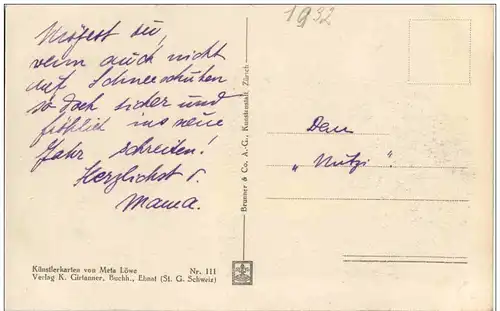 1932
Mögest du,
wenn auch nicht
auf Schneeschuhen
so doch sicher und
fröhlich ins neue
Jahr schreiten!
Herzlichst
Mama.
Dem
„Mutzi".
Brunner & Co. A.-G., Kunstanstalt, Zürich
Künstlerkarten von Meta Löwe Nr. 111
Verlag K. Girtanner, Buchh., Ebnat (St. G. Schweiz)